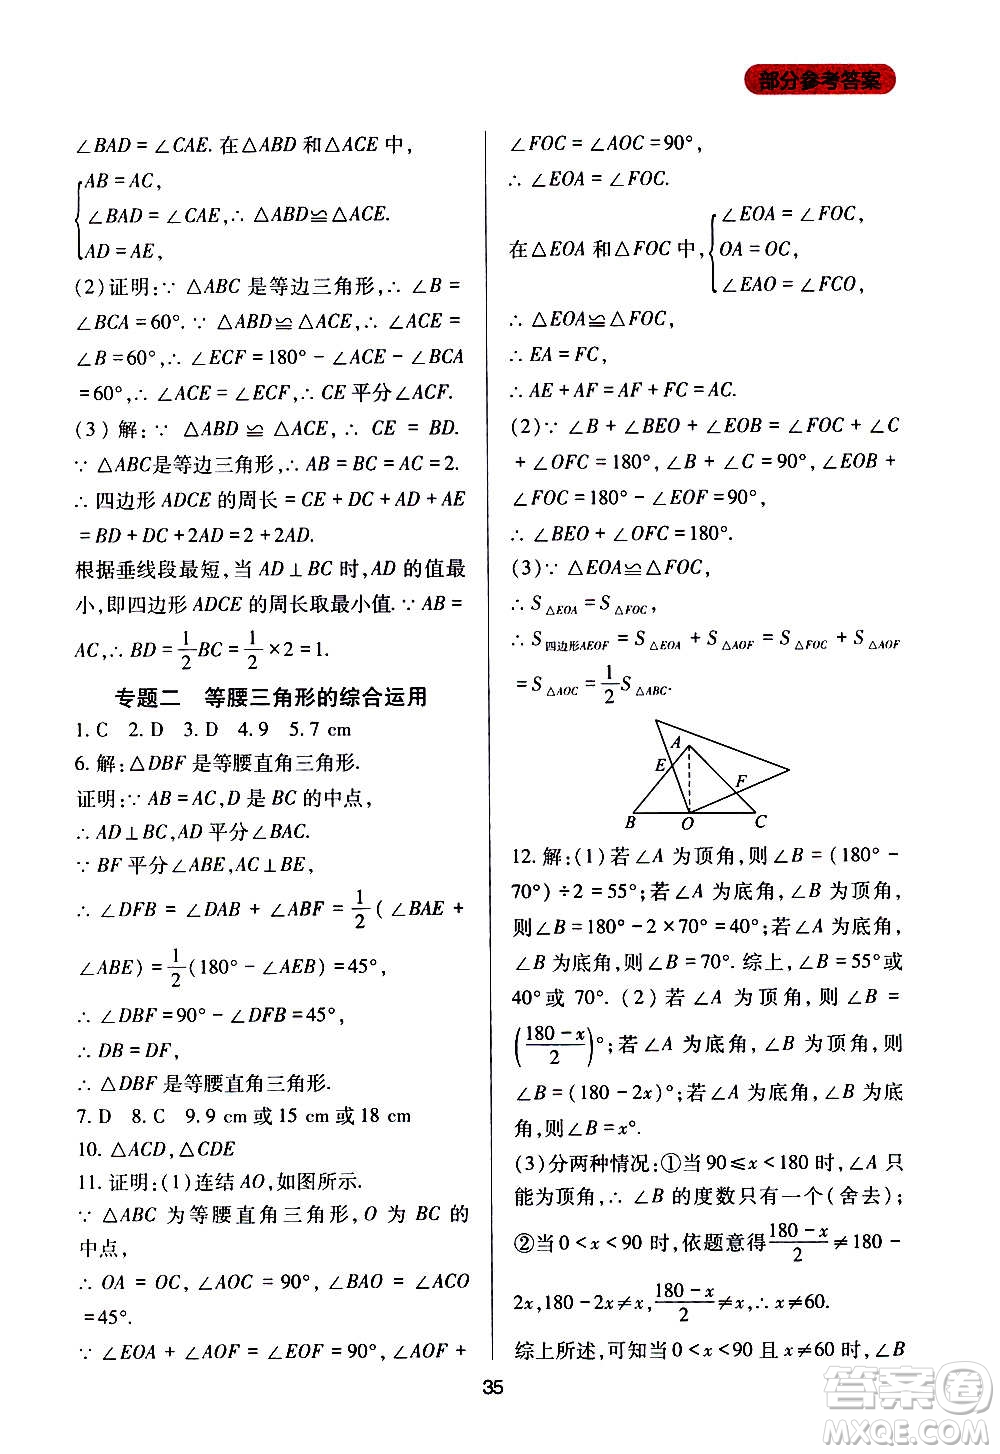 部分参考答案
∠BAD = ∠CAE. 在△ABD 和△ACE 中，
AB = AC,
∠BAD = ∠CAE, ∴ △ABD≌△ACE.
AD = AE,
(2)证明:∵ △ABC 是等边三角形,∴ ∠B =
∠BCA = 60°. ∵ △ABD≌△ACE,∴ ∠ACE =
∠B = 60°,∴ ∠ECF = 180° − ∠ACE − ∠BCA
= 60°,∴ ∠ACE = ∠ECF,∴ CE 平分∠ACF.
(3) 解: ∵ △ABD ≌ △ACE, ∴ CE = BD.
∵ △ABC是等边三角形,∴ AB = BC = AC = 2.
∴ 四边形 ADCE 的周长 = CE + DC + AD + AE
= BD + DC + 2AD = 2 + 2AD.
根据垂线段最短, 当 AD⊥BC 时, AD 的值最
小,即四边形 ADCE 的周长取最小值. ∵ AB =
AC,∴ BD = 1/2 BC = 1/2 × 2 = 1.
专题二 等腰三角形的综合运用
1. C 2. D 3. D 4. 9 5. 7 cm
6. 解:△DBF 是等腰直角三角形.
证明:∵ AB = AC, D 是 BC 的中点，
∴ AD⊥BC, AD 平分∠BAC.
∵ BF 平分∠ABE, AC⊥BE,
∴ ∠DFB = ∠DAB + ∠ABF = 1/2 (∠BAE +
∠ABE) = 1/2 (180° − ∠AEB) = 45°,
∴ ∠DBF = 90° − ∠DFB = 45°,
∴ DB = DF,
∴ △DBF 是等腰直角三角形.
7. D 8. C 9. 9 cm 或 15 cm 或 18 cm
10. △ACD, △CDE
11. 证明:(1)连结 AO,如图所示.
∵ △ABC 为等腰直角三角形, O 为 BC 的
中点,
∴ OA = OC, ∠AOC = 90°, ∠BAO = ∠ACO
= 45°.
∵ ∠EOA + ∠AOF = ∠EOF = 90°, ∠AOF +
∠FOC = ∠AOC = 90°,
∴ ∠EOA = ∠FOC.
∠EOA = ∠FOC,
在△EOA 和△FOC 中, OA = OC,
∠EAO = ∠FCO,
∴ △EOA≌△FOC,
∴ EA = FC,
∴ AE + AF = AF + FC = AC.
(2)∵ ∠B + ∠BEO + ∠EOB = ∠FOC + ∠C
+ ∠OFC = 180°, ∠B + ∠C = 90°, ∠EOB +
∠FOC = 180° − ∠EOF = 90°,
∴ ∠BEO + ∠OFC = 180°.
(3)∵ △EOA≌△FOC,
∴ S△EOA = S△FOC,
∴ S四边形AEOF = S△EOA + S△AOF = S△FOC + S△AOF
= S△AOC = 1/2 S△ABC.
A
E
F
B O C
12. 解:(1)若∠A 为顶角,则∠B = (180° −
70°) ÷ 2 = 55°;若∠A 为底角,∠B 为顶角,
则∠B = 180° − 2 × 70° = 40°;若∠A 为底角,
∠B 为底角,则∠B = 70°. 综上,∠B = 55°或
40°或 70°. (2)若∠A 为顶角,则∠B =
((180 − x)/2)°;若∠A 为底角,∠B 为顶角,则
∠B = (180 − 2x)°;若∠A 为底角,∠B 为底
角,则∠B = x°.
(3)分两种情况:①当 90≤x < 180 时,∠A 只
能为顶角,∴ ∠B 的度数只有一个(舍去);
②当 0 < x < 90 时,依题意得 (180 − x)/2 ≠ 180 −
2x, 180 − 2x ≠ x, (180 − x)/2 ≠ x, ∴ x ≠ 60.
综上所述,可知当 0 < x < 90 且 x ≠ 60 时,∠B
35
答案圈
MXQE.COM